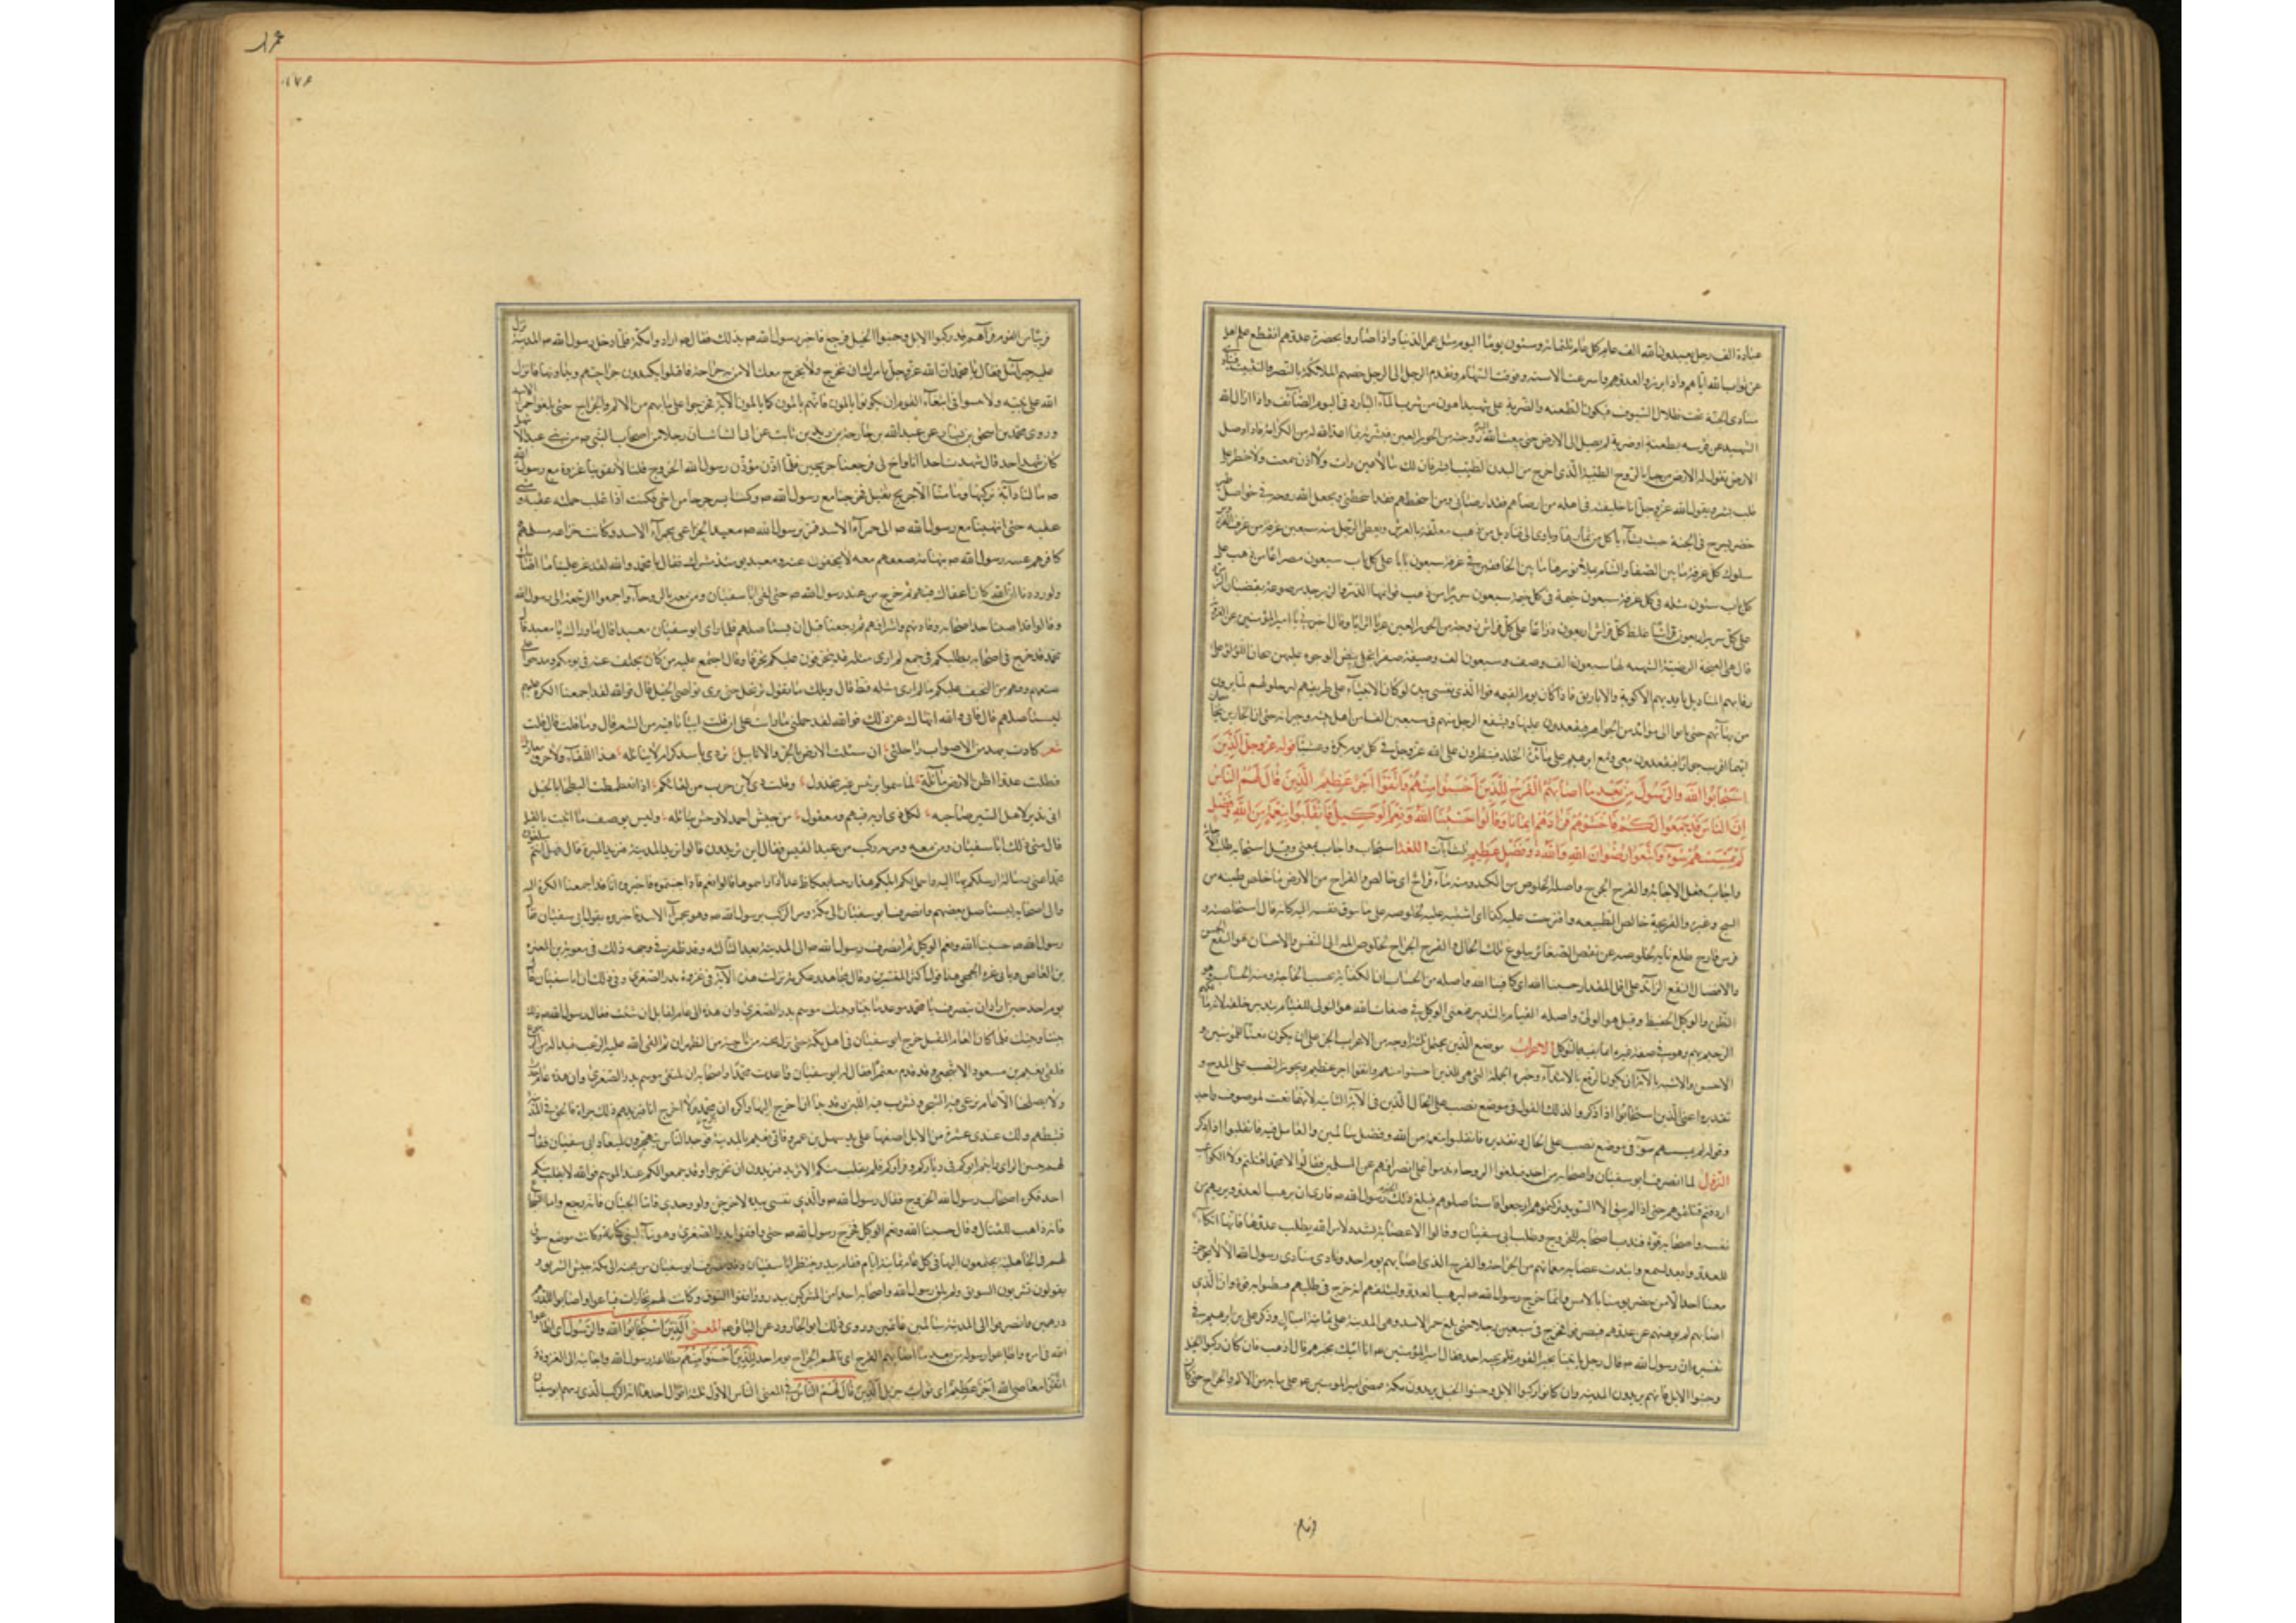 عبادة الف رجل يعبدون الله الف عام كل عام ثلثمائة وستون يوما اليوم مثل عمر الدنيا واذا صاروا بحضرة عدوهم انقطع علم اهل
عن ثواب الله اياهم واذا برزوا لعدوهم واسرعت الاسنة وفوقت السهام وتقدم الرجل الى الرجل حفتهم الملائكة
ينادى الجنة تحت ظلال السيوف فيكون الطعنة والضربة على الشهيد اهون من شرب الماء البارد فى اليوم الصائف واذا ازال الله
الشهيد عن فرسه بطعنة او ضربة لم يصل الى الارض حتى يبعث الله زوجته من الحور العين فتبشره بما اعد الله له من الكرامة فاذا وصل
الارض تقول له الارض مرحبا بالروح الطيبة الذى اخرج من البدن الطيب ابشر فان لك ما لا عين رات ولا اذن سمعت ولا خطر على
قلب بشر ويقول الله عز وجل انا خليفته فى اهله من ارضاهم فقد ارضانى ومن اسخطهم فقد اسخطنى ويجعل الله روحه فى حواصل طير
خضر تسرح فى الجنة حيث تشاء تاكل من ثمارها وتاوى الى قناديل من ذهب معلقة بالعرش ويعطى الرجل منهم سبعين غرفة من غرف الفردوس
سلوك كل غرفة ما بين الصنعاء والشام يملا نورها ما بين الخافقين فى كل غرفة سبعون بابا على كل باب سبعون مصراعا من ذهب على
كل باب ستون مسبلة فى كل غرفة سبعون خيمة فى كل خيمة سبعون سريرا من ذهب قوائمها الدر والزبرجد مرصوصة بقضبان الزمرد
على كل سرير اربعون فراشا غلظ كل فراش اربعون ذراعا على كل فراش زوجة من الحور العين عربا اترابا وقال اخبرنى يا امير المؤمنين عن العروبة
قال هى الغنجة الرضية الشهية لها سبعون الف وصيف وسبعون الف وصيفة صفر الحلى بيض الوجوه عليهن تيجان اللؤلؤ على
رقابهم المناديل بايديهم الاكوبة والاباريق فاذا كان يوم القيمة فوالذى نفسى بيده لو كان الانبياء على طريقهم لترجلوا لهم لما يرون
من بهائهم حتى ياتوا الى موائد من الجواهر فيقعدون عليها ويشفع الرجل منهم فى سبعين الفا من اهل بيته وجيرانه حتى ان الجارين
ايهما اقرب جوارا فيقعدون معى ومع ابرهيم على مائدة الخلد فينظرون الى الله عز وجل فى كل يوم بكرة وعشيا قوله عز وجل الذين
استجابوا لله والرسول من بعد ما اصابهم القرح للذين احسنوا منهم واتقوا اجر عظيم الذين قال لهم الناس
ان الناس قد جمعوا لكم فاخشوهم فزادهم ايمانا وقالوا حسبنا الله ونعم الوكيل فانقلبوا بنعمة من الله وفضل
لم يمسسهم سوء واتبعوا رضوان الله والله ذو فضل عظيم ثلث آيات اللغة استجاب واجاب بمعنى وقيل استجاب طلب الاجابة
واجاب فعل الاجابة والقرح الجرح واصله الخلوص من الكدر ومنه ماء قراح اى خالص والقراح من الارض ما خلص طينه من
السبخ وغيره والقريحة خالص الطبيعة واقترحت عليه كذا اى اشتهيته عليه لخلوصه على ما تتوق نفسه اليه كانه قال استخلصته و
فرس قارح طلع نابه لخلوصه عن نقص الصغار ببلوغ تلك الحال والقرح الجراح لخلوص المه الى النفس والاحسان هو النفع الحسن
والافضال النفع الزائد على اقل المقدار حسبنا الله اى كافينا الله واصله من الحساب لان الكفاية بحسب الحاجة ومنه الحسبان وهو
الظن والوكيل الحفيظ وقيل هو الولى واصله القيام بالتدبير فمعنى الوكيل فى صفات الله هو المتولى للقيام بتدبير خلقه لانه مالكهم
الرحيم بهم وهو فى صفة غيره انما يعقد بالتوكيل الاعراب موضع الذين يحتمل ثلثة اوجه من الاعراب الجر على ان يكون نعتا للمؤمنين و
الاحسن والاشبه بالآية ان يكون الرفع بالابتداء وخبره الجملة التى هى للذين احسنوا منهم واتقوا اجر عظيم ويجوز النصب على المدح و
تقديره اعنى الذين استجابوا اذا ذكروا
وقوله لم يمسسهم سوء فى موضع نصب على الحال وتقديره فانقلبوا بنعمة من الله وفضل سالمين والعامل فيه فانقلبوا
النزول لما انصرف ابو سفيان واصحابه من احد فبلغوا الروحاء ندموا على انصرافهم عن المسلمين فقالوا لا محمدا قتلتم ولا الكواعب
اردفتم قتلتموهم حتى اذا لم يبق الا الشريد تركتموهم ارجعوا فاستاصلوهم فبلغ ذلك الخبر رسول الله ص فاراد ان يرهب العدو ويريهم من
نفسه واصحابه قوة فندب اصحابه للخروج فى طلب ابى سفيان وقالوا الا عصابة تشدد لامر الله يطلب عدوها فانها انكاء
للعدو وابعد للسمع وانتدب عصابة مع ما بهم من الجراحة والقرح الذى اصابهم يوم احد ونادى منادى رسول الله الا لا يخرجن
معنا احد الا من حضر يومنا بالامس وانما خرج رسول الله ص ليرهب العدو وليبلغهم انه خرج فى طلبهم فيظنوا به قوة وان الذى
اصابهم لم يوهنهم عن عدوهم فينصرفوا فخرج فى سبعين رجلا حتى بلغ حمراء الاسد وهى من المدينة على ثمانية اميال وذكر على بن ابرهيم فى
تفسيره ان رسول الله ص قال هل رجل ياتينا بخبر القوم فلم يجبه احد فقال امير المؤمنين ع انا اتيك بخبرهم قال اذهب فان كان ركبوا الخيل
وجنبوا الابل فانهم يريدون المدينة وان كانوا ركبوا الابل وجنبوا الخيل يريدون مكة فمضى امير المؤمنين ع على ما به من الالم والجراح حتى كان
عمران
قريبا من القوم فرآهم قد ركبوا الابل وجنبوا الخيل فرجع فاخبر رسول الله ص بذلك فقال ص ارادوا مكة فلما دخل رسول الله ص المدينة نزل
عليه جبرائيل فقال يا محمد ان الله عز وجل يامرك ان تخرج ولا يخرج معك الا من به جراحة فاقبلوا يكمدون جراحاتهم ويداوونها فانزل
الله على نبيه ولا تهنوا فى ابتغاء القوم ان تكونوا تالمون فانهم يالمون كما تالمون الآية فخرجوا على ما بهم من الالم والجراح حتى بلغوا حمراء الاسد
وروى محمد بن اسحق بن يسار عن عبد الله بن خارجة بن زيد بن ثابت عن ابى السائب ان رجلا من اصحاب النبى ص من بنى عبد الاشهل
كان شهد احدا قال شهدت احدا انا واخ لى فرجعنا جريحين فلما اذن مؤذن رسول الله بالخروج قلنا لا تفوتنا غزوة مع رسول الله
ص ما لنا دابة نركبها وما منا الا جريح ثقيل فخرجنا مع رسول الله ص وكنت ايسر جرحا من اخى فكنت اذا غلب حملته عقبة ومشى
عقبة حتى انتهينا مع رسول الله ص الى حمراء الاسد فمر برسول الله ص معبد الخزاعى بحمراء الاسد وكانت خزاعة مسلمهم
كافرهم عيبة رسول الله ص بتهامة صفقتهم معه لا يخفون عنه ومعبد يومئذ مشرك فقال يا محمد والله لقد عز علينا ما اصابك
ولوددنا ان الله كان اعفاك فيهم ثم خرج من عند رسول الله ص حتى لقى ابا سفيان ومن معه بالروحاء واجمعوا الرجعة الى رسول الله
وقالوا قد اصبنا حد اصحابه وقادتهم واشرافهم ثم رجعنا قبل ان نستاصلهم فلما راى ابو سفيان معبدا قال ما وراك يا معبد قال
محمد قد خرج فى اصحابه يطلبكم فى جمع لم ار مثله قط يتحرقون عليكم تحرقا وقد اجتمع عليه من كان تخلف عنه فى يومكم وندموا على
صنيعهم وفيهم من الحنق عليكم ما لم ار مثله قط قال ويلك ما تقول قال فوالله ما ارى ترتحل حتى ترى نواصى الخيل قال فوالله لقد اجمعنا الكرة عليهم
لنستاصلهم قال فانى والله انهاك عن ذلك فوالله لقد حملنى ما رايت على ان قلت ابياتا فيه من الشعر قال وما قلت قال قلت
شعر كادت تهد من الاصوات راحلتى ان سالت الارض بالجرد الابابيل تردى باسد كرام لا تنابلة عند اللقاء ولا خرق معازيل
فظلت عدوا اظن الارض مائلة لما سموا برئيس غير مخذول وقلت ويل لابن حرب من لقائكم اذا تغطمطت البطحاء بالخيل
انى نذير لاهل السير ضاحية لكل ذى اربة منهم ومعقول من جيش احمد لا وحش قنابله وليس يوصف ما اثبت بالقيل
قال فثنى ذلك ابا سفيان ومن معه ومر به ركب من عبد القيس فقال اين تريدون قالوا نريد المدينة نريد الميرة قال فهل انتم مبلغون
محمدا عنى رسالة ارسلكم بها اليه واحمل لكم ابلكم هذه زبيبا بعكاظ غدا اذا وافيتموها قالوا نعم قال فاذا جئتموه فاخبروه انا قد اجمعنا الكرة اليه
والى اصحابه لنستاصل بقيتهم وانصرف ابو سفيان الى مكة ومر الركب برسول الله ص وهو بحمراء الاسد فاخبروه بقول ابى سفيان فقال
رسول الله ص حسبنا الله ونعم الوكيل ثم انصرف رسول الله ص الى المدينة بعد الثالثة وقد ظفر فى وجهه ذلك بمعوية بن المغيرة
بن العاص وبابى غرة الجمحى هذا قول اكثر المفسرين وقال مجاهد وعكرمة نزلت هذه الآية فى غزوة بدر الصغرى وذلك ان ابا سفيان قال
يوم احد حين اراد ان ينصرف يا محمد موعد ما بيننا وبينك موسم بدر الصغرى وان هذه الى عام لقابل ان شئت فقال رسول الله ص ذلك
بيننا وبينك فلما كان العام المقبل خرج ابو سفيان فى اهل مكة حتى نزل مجنة من ناحية من الظهران ثم القى الله عليه الرعب فبدا له من الرجوع
فلقى نعيم بن مسعود الاشجعى وقد قدم معتمرا فقال له ابو سفيان واعدت محمدا واصحابه ان نلتقى موسم بدر الصغرى وان هذه عام جدب
ولا يصلحنا الا عام نرعى فيه الشجر ونشرب فيه اللبن وقد بدا لى ان لا اخرج اليها واكره ان يخرج محمد ولا اخرج انا فيزيدهم ذلك جراة فالحق بالمدينة
فثبطهم ولك عندى عشرة من الابل اضعها على يد سهيل بن عمرو فاتى نعيم المدينة فوجد الناس يتجهزون لميعاد ابى سفيان فقال
لهم بئس الراى رايتم اتوكم فى دياركم وقراركم فلم يفلت منكم الا شريد فتريدون ان تخرجوا وقد جمعوا لكم عند الموسم فوالله لا يفلت منكم
احد فكره اصحاب رسول الله الخروج فقال رسول الله ص والذى نفسى بيده لاخرجن ولو وحدى فاما الجبان فانه رجع واما الشجاع
فانه تاهب للقتال وقال حسبنا الله ونعم الوكيل فخرج رسول الله ص حتى وافقوا بدر الصغرى وهو ماء لبنى كنانة وكانت موضع سوق
لهم فى الجاهلية يجتمعون اليها فى كل عام ثمانية ايام فقام ببدر ينتظر ابا سفيان وقد انصرف ابو سفيان من مجنة الى مكة جيش السويق و
يقولون تشربون السويق ولم يلق رسول الله واصحابه احدا من المشركين ببدر ووافقوا السوق وكانت لهم تجارات فباعوا واصابوا للدرهم
درهمين وانصرفوا الى المدينة سالمين غانمين وروى ذلك ابو الجارود عن الباقر ع المعنى الذين استجابوا لله والرسول اى اطاعوا
الله فى اوامره واطاعوا رسوله من بعد ما اصابهم القرح اى نالهم الجراح يوم احد للذين احسنوا منهم بطاعة رسول الله واجابته الى الغزو و
اتقوا معاصى الله اجر عظيم اى ثواب جزيل الذين قال لهم الناس فى المعنى بالناس الاول ثلثة اقوال احدها انه الركب الذى دسهم ابو سفيان